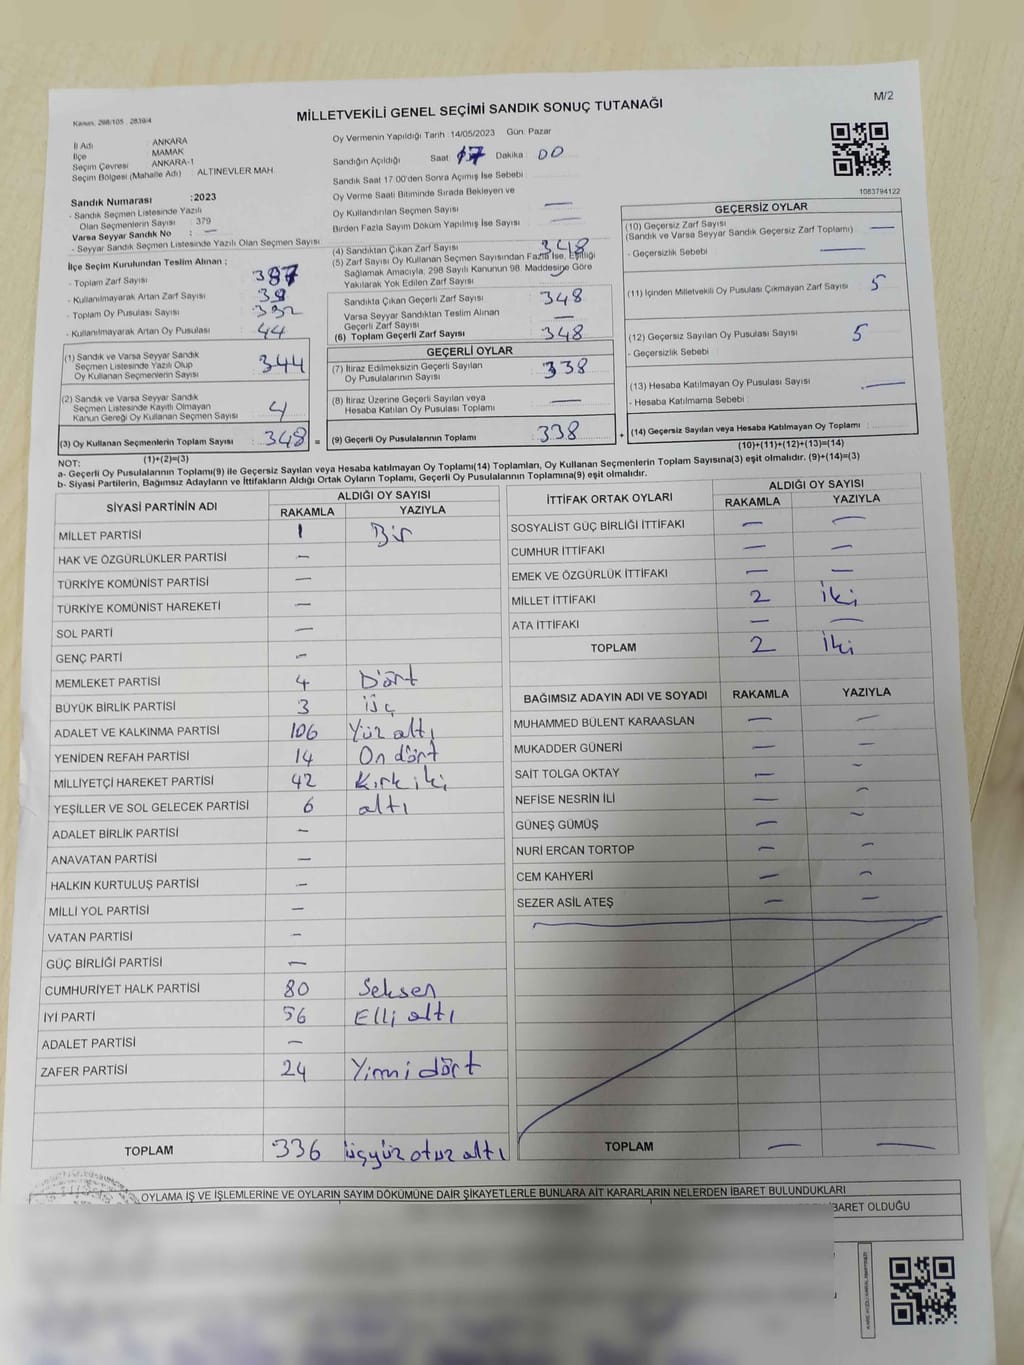 Kanun. 298/105 . 2839/4
MİLLETVEKİLİ GENEL SEÇİMİ SANDIK SONUÇ TUTANAĞI
M/2
İl Adı ANKARA
İlçe MAMAK
Seçim Çevresi ANKARA-1
Seçim Bölgesi (Mahalle Adı) : ALTINEVLER MAH.
Sandık Numarası :2023
- Sandık Seçmen Listesinde Yazılı
Olan Seçmenlerin Sayısı : 379
Varsa Seyyar Sandık No : —
- Seyyar Sandık Seçmen Listesinde Yazılı Olan Seçmen Sayısı
İlçe Seçim Kurulundan Teslim Alınan ;
- Toplam Zarf Sayısı 387
- Kullanılmayarak Artan Zarf Sayısı 39
- Toplam Oy Pusulası Sayısı
- Kullanılmayarak Artan Oy Pusulası 44
(1) Sandık ve Varsa Seyyar Sandık
Seçmen Listesinde Yazılı Olup
Oy Kullanan Seçmenlerin Sayısı 344
(2) Sandık ve Varsa Seyyar Sandık
Seçmen Listesinde Kayıtlı Olmayan
Kanun Gereği Oy Kullanan Seçmen Sayısı 4
(3) Oy Kullanan Seçmenlerin Toplam Sayısı : 348 =
(1)+(2)=(3)
Oy Vermenin Yapıldığı Tarih : 14/05/2023 Gün: Pazar
Sandığın Açıldığı Saat 17 Dakika 00
Sandık Saat 17:00'den Sonra Açılmış İse Sebebi
Oy Verme Saati Bitiminde Sırada Bekleyen ve
Oy Kullandırılan Seçmen Sayısı —
Birden Fazla Sayım Döküm Yapılmış İse Sayısı —
(4) Sandıktan Çıkan Zarf Sayısı 348
(5) Zarf Sayısı Oy Kullanan Seçmen Sayısından Fazla İse, Eşitliği
Sağlamak Amacıyla, 298 Sayılı Kanunun 98. Maddesine Göre
Yakılarak Yok Edilen Zarf Sayısı
Sandıkta Çıkan Geçerli Zarf Sayısı 348
Varsa Seyyar Sandıktan Teslim Alınan
Geçerli Zarf Sayısı —
(6) Toplam Geçerli Zarf Sayısı 348
GEÇERLİ OYLAR
(7) İtiraz Edilmeksizin Geçerli Sayılan
Oy Pusulalarının Sayısı 338
(8) İtiraz Üzerine Geçerli Sayılan veya
Hesaba Katılan Oy Pusulası Toplamı —
(9) Geçerli Oy Pusulalarının Toplamı 338 +
1083794122
GEÇERSİZ OYLAR
(10) Geçersiz Zarf Sayısı
(Sandık ve Varsa Seyyar Sandık Geçersiz Zarf Toplamı) —
- Geçersizlik Sebebi —
(11) İçinden Milletvekili Oy Pusulası Çıkmayan Zarf Sayısı 5
(12) Geçersiz Sayılan Oy Pusulası Sayısı 5
- Geçersizlik Sebebi
(13) Hesaba Katılmayan Oy Pusulası Sayısı —
- Hesaba Katılmama Sebebi :
(14) Geçersiz Sayılan veya Hesaba Katılmayan Oy Toplamı :
(10)+(11)+(12)+(13)=(14)
NOT:
a- Geçerli Oy Pusulalarının Toplamı(9) ile Geçersiz Sayılan veya Hesaba katılmayan Oy Toplamı(14) Toplamları, Oy Kullanan Seçmenlerin Toplam Sayısına(3) eşit olmalıdır. (9)+(14)=(3)
b- Siyasi Partilerin, Bağımsız Adayların ve İttifakların Aldığı Ortak Oyların Toplamı, Geçerli Oy Pusulalarının Toplamına(9) eşit olmalıdır.
SİYASİ PARTİNİN ADI ALDIĞI OY SAYISI
RAKAMLA YAZIYLA
MİLLET PARTİSİ 1 Bir
HAK VE ÖZGÜRLÜKLER PARTİSİ —
TÜRKİYE KOMÜNİST PARTİSİ —
TÜRKİYE KOMÜNİST HAREKETİ —
SOL PARTİ —
GENÇ PARTİ —
MEMLEKET PARTİSİ 4 Dört
BÜYÜK BİRLİK PARTİSİ 3 üç
ADALET VE KALKINMA PARTİSİ 106 Yüz altı
YENİDEN REFAH PARTİSİ 14 On dört
MİLLİYETÇİ HAREKET PARTİSİ 42 Kırk iki
YEŞİLLER VE SOL GELECEK PARTİSİ 6 altı
ADALET BİRLİK PARTİSİ —
ANAVATAN PARTİSİ —
HALKIN KURTULUŞ PARTİSİ —
MİLLİ YOL PARTİSİ —
VATAN PARTİSİ —
GÜÇ BİRLİĞİ PARTİSİ —
CUMHURİYET HALK PARTİSİ 80 Seksen
İYİ PARTİ 56 Elli altı
ADALET PARTİSİ —
ZAFER PARTİSİ 24 Yirmi dört
TOPLAM 336 üçyüz otuz altı
İTTİFAK ORTAK OYLARI ALDIĞI OY SAYISI
RAKAMLA YAZIYLA
SOSYALİST GÜÇ BİRLİĞİ İTTİFAKI — —
CUMHUR İTTİFAKI — —
EMEK VE ÖZGÜRLÜK İTTİFAKI — —
MİLLET İTTİFAKI 2 iki
ATA İTTİFAKI — —
TOPLAM 2 iki
BAĞIMSIZ ADAYIN ADI VE SOYADI RAKAMLA YAZIYLA
MUHAMMED BÜLENT KARAASLAN — —
MUKADDER GÜNERİ — —
SAİT TOLGA OKTAY — —
NEFİSE NESRİN İLİ — —
GÜNEŞ GÜMÜŞ — —
NURİ ERCAN TORTOP — —
CEM KAHYERİ — —
SEZER ASİL ATEŞ — —
TOPLAM — —
OYLAMA İŞ VE İŞLEMLERİNE VE OYLARIN SAYIM DÖKÜMÜNE DAİR ŞİKAYETLERLE BUNLARA AİT KARARLARIN NELERDEN İBARET BULUNDUKLARI
İBARET OLDUĞU